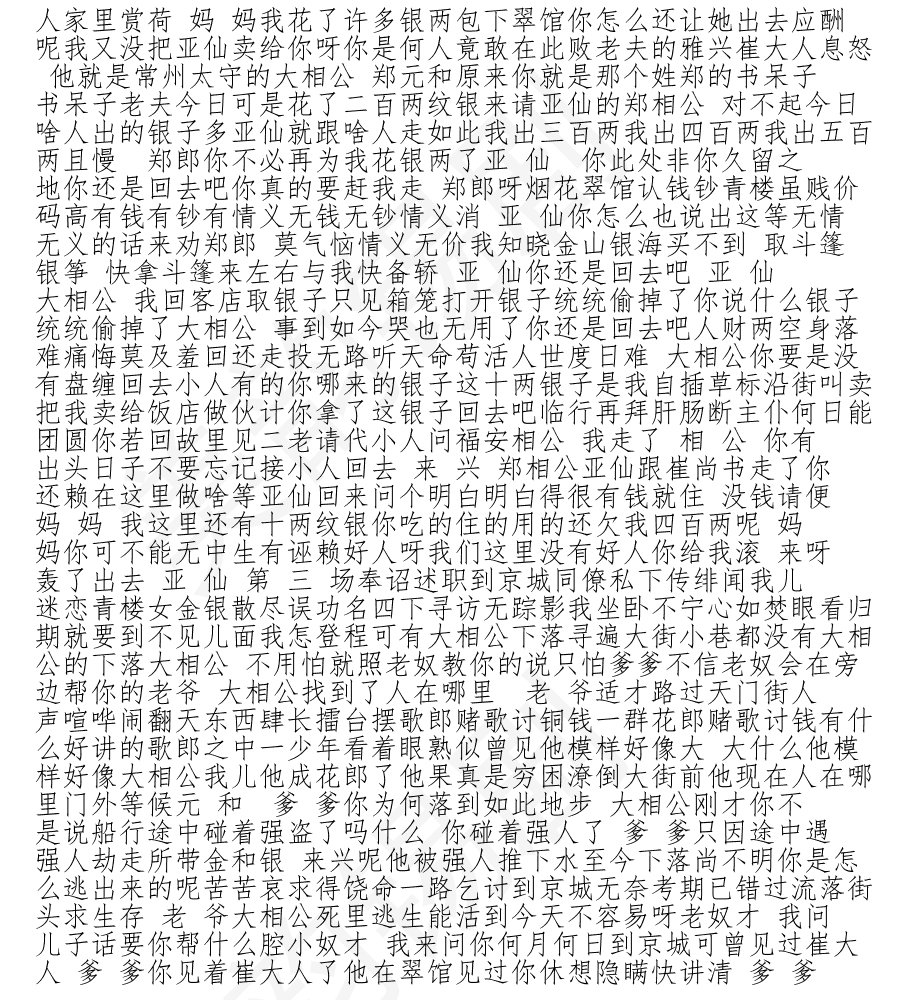 人家里赏荷 妈 妈我花了许多银两包下翠馆你怎么还让她出去应酬
呢我又没把亚仙卖给你呀你是何人竟敢在此败老夫的雅兴崔大人息怒
他就是常州太守的大相公 郑元和原来你就是那个姓郑的书呆子
书呆子老夫今日可是花了二百两纹银来请亚仙的郑相公 对不起今日
啥人出的银子多亚仙就跟啥人走如此我出三百两我出四百两我出五百
两且慢 郑郎你不必再为我花银两了亚 仙 你此处非你久留之
地你还是回去吧你真的要赶我走 郑郎呀烟花翠馆认钱钞青楼虽贱价
码高有钱有钞有情义无钱无钞情义消 亚 仙你怎么也说出这等无情
无义的话来劝郑郎 莫气恼情义无价我知晓金山银海买不到 取斗篷
银筝 快拿斗篷来左右与我快备轿 亚 仙你还是回去吧 亚 仙
大相公 我回客店取银子只见箱笼打开银子统统偷掉了你说什么银子
统统偷掉了大相公 事到如今哭也无用了你还是回去吧人财两空身落
难痛悔莫及羞回还走投无路听天命苟活人世度日难 大相公你要是没
有盘缠回去小人有的你哪来的银子这十两银子是我自插草标沿街叫卖
把我卖给饭店做伙计你拿了这银子回去吧临行再拜肝肠断主仆何日能
团圆你若回故里见二老请代小人问福安相公 我走了 相 公 你有
出头日子不要忘记接小人回去 来 兴 郑相公亚仙跟崔尚书走了你
还赖在这里做啥等亚仙回来问个明白明白得很有钱就住 没钱请便
妈 妈 我这里还有十两纹银你吃的住的用的还欠我四百两呢 妈
妈你可不能无中生有诬赖好人呀我们这里没有好人你给我滚 来呀
轰了出去 亚 仙 第 三 场奉诏述职到京城同僚私下传绯闻我儿
迷恋青楼女金银散尽误功名四下寻访无踪影我坐卧不宁心如焚眼看归
期就要到不见儿面我怎登程可有大相公下落寻遍大街小巷都没有大相
公的下落大相公 不用怕就照老奴教你的说只怕爹爹不信老奴会在旁
边帮你的老爷 大相公找到了人在哪里 老 爷适才路过天门街人
声喧哗闹翻天东西肆长擂台摆歌郎赌歌讨铜钱一群花郎赌歌讨钱有什
么好讲的歌郎之中一少年看着眼熟似曾见他模样好像大 大什么他模
样好像大相公我儿他成花郎了他果真是穷困潦倒大街前他现在人在哪
里门外等候元 和 爹 爹你为何落到如此地步 大相公刚才你不
是说船行途中碰着强盗了吗什么 你碰着强人了 爹 爹只因途中遇
强人劫走所带金和银 来兴呢他被强人推下水至今下落尚不明你是怎
么逃出来的呢苦苦哀求得饶命一路乞讨到京城无奈考期已错过流落街
头求生存 老 爷大相公死里逃生能活到今天不容易呀老奴才 我问
儿子话要你帮什么腔小奴才 我来问你何月何日到京城可曾见过崔大
人 爹 爹你见着崔大人了他在翠馆见过你休想隐瞒快讲清 爹 爹